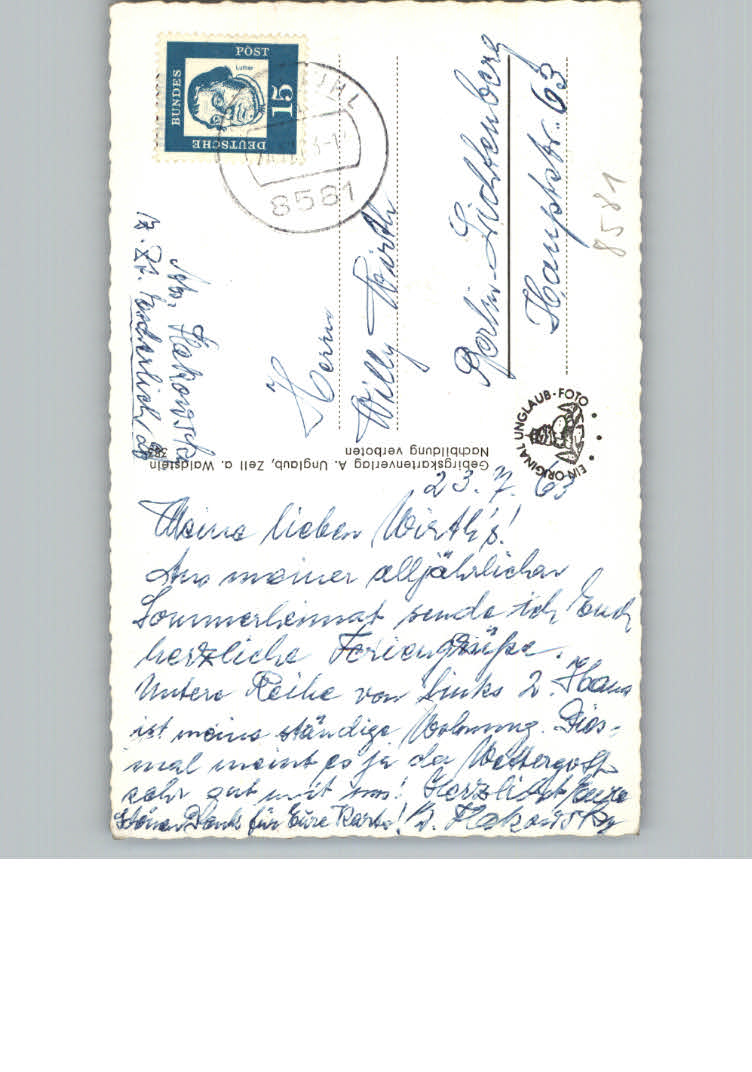 DEUTSCHE
BUNDES
POST
Luther
15
8581
Abs. Hakowsky
z. Zt.
Herrn
Willy Wirth
Berlin-Lichtenberg
Hauptstr. 63
8581
EIN ORIGINAL UNGLAUB-FOTO
Gebirgskartenverlag A. Unglaub, Zell a. Waldstein
Nachbildung verboten
23.7.63
Meine lieben Wirth's!
Aus meiner alljährlichen
Sommerheimat sende ich Euch
herzliche Feriengrüße.
Untere Reihe von links 2. Haus
ist meine ständige Wohnung. Dies-
mal meint es ja der Wettergott
sehr gut mit uns! Herzlichst Eure
Schönen Dank für Eure Karte! Hakowsky